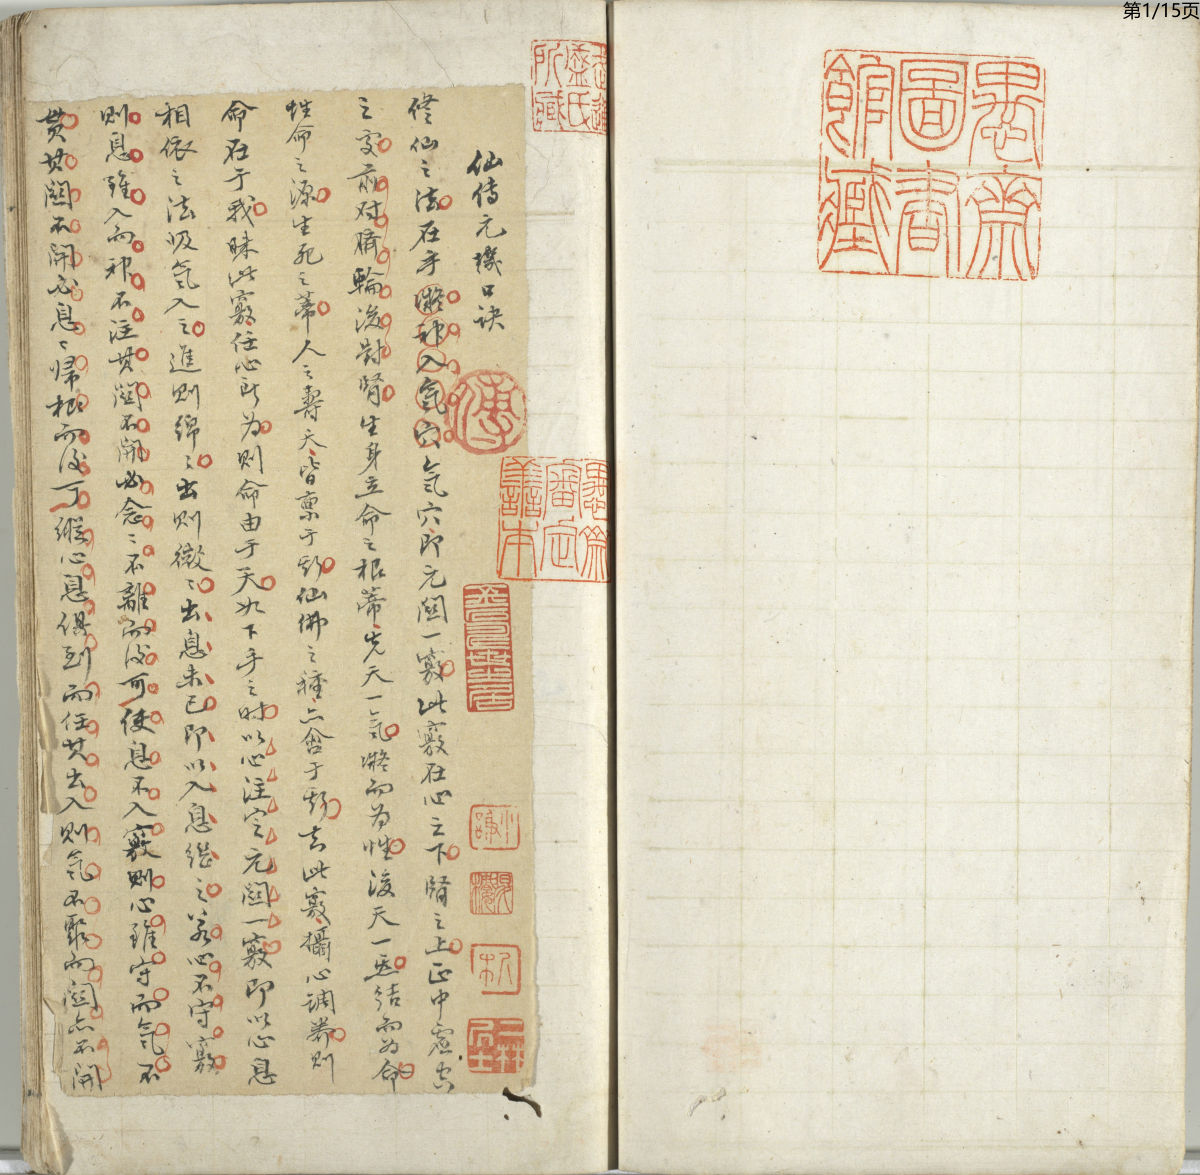 第1/15页
愚齋圖書館藏
愚齋審定善本
仙傳元機口訣
修仙之法在乎凝神入氣穴氣穴即元關一竅此竅在心之下腎之上正中虛空
之處前对臍輪後对腎生身立命之根蒂先天一氣凝而为性後天一炁结而为命
性命之源生死之蒂人之壽夭皆禀于斯仙佛之種亦含于斯去此竅攝心調养则
命在于我昧此竅任心所为则命由于天如下手之时以心注定元關一竅即以心息
相依之法吸氣入之進则綿々出则微々出息未已即以入息继之若心不守竅
则息雖入而神不注其關不開必念々不離而後可使息不入竅则心雖守而氣不
贯其關不開必息々归根而後可縱心息俱到而任其出入则氣不聚而關亦不開